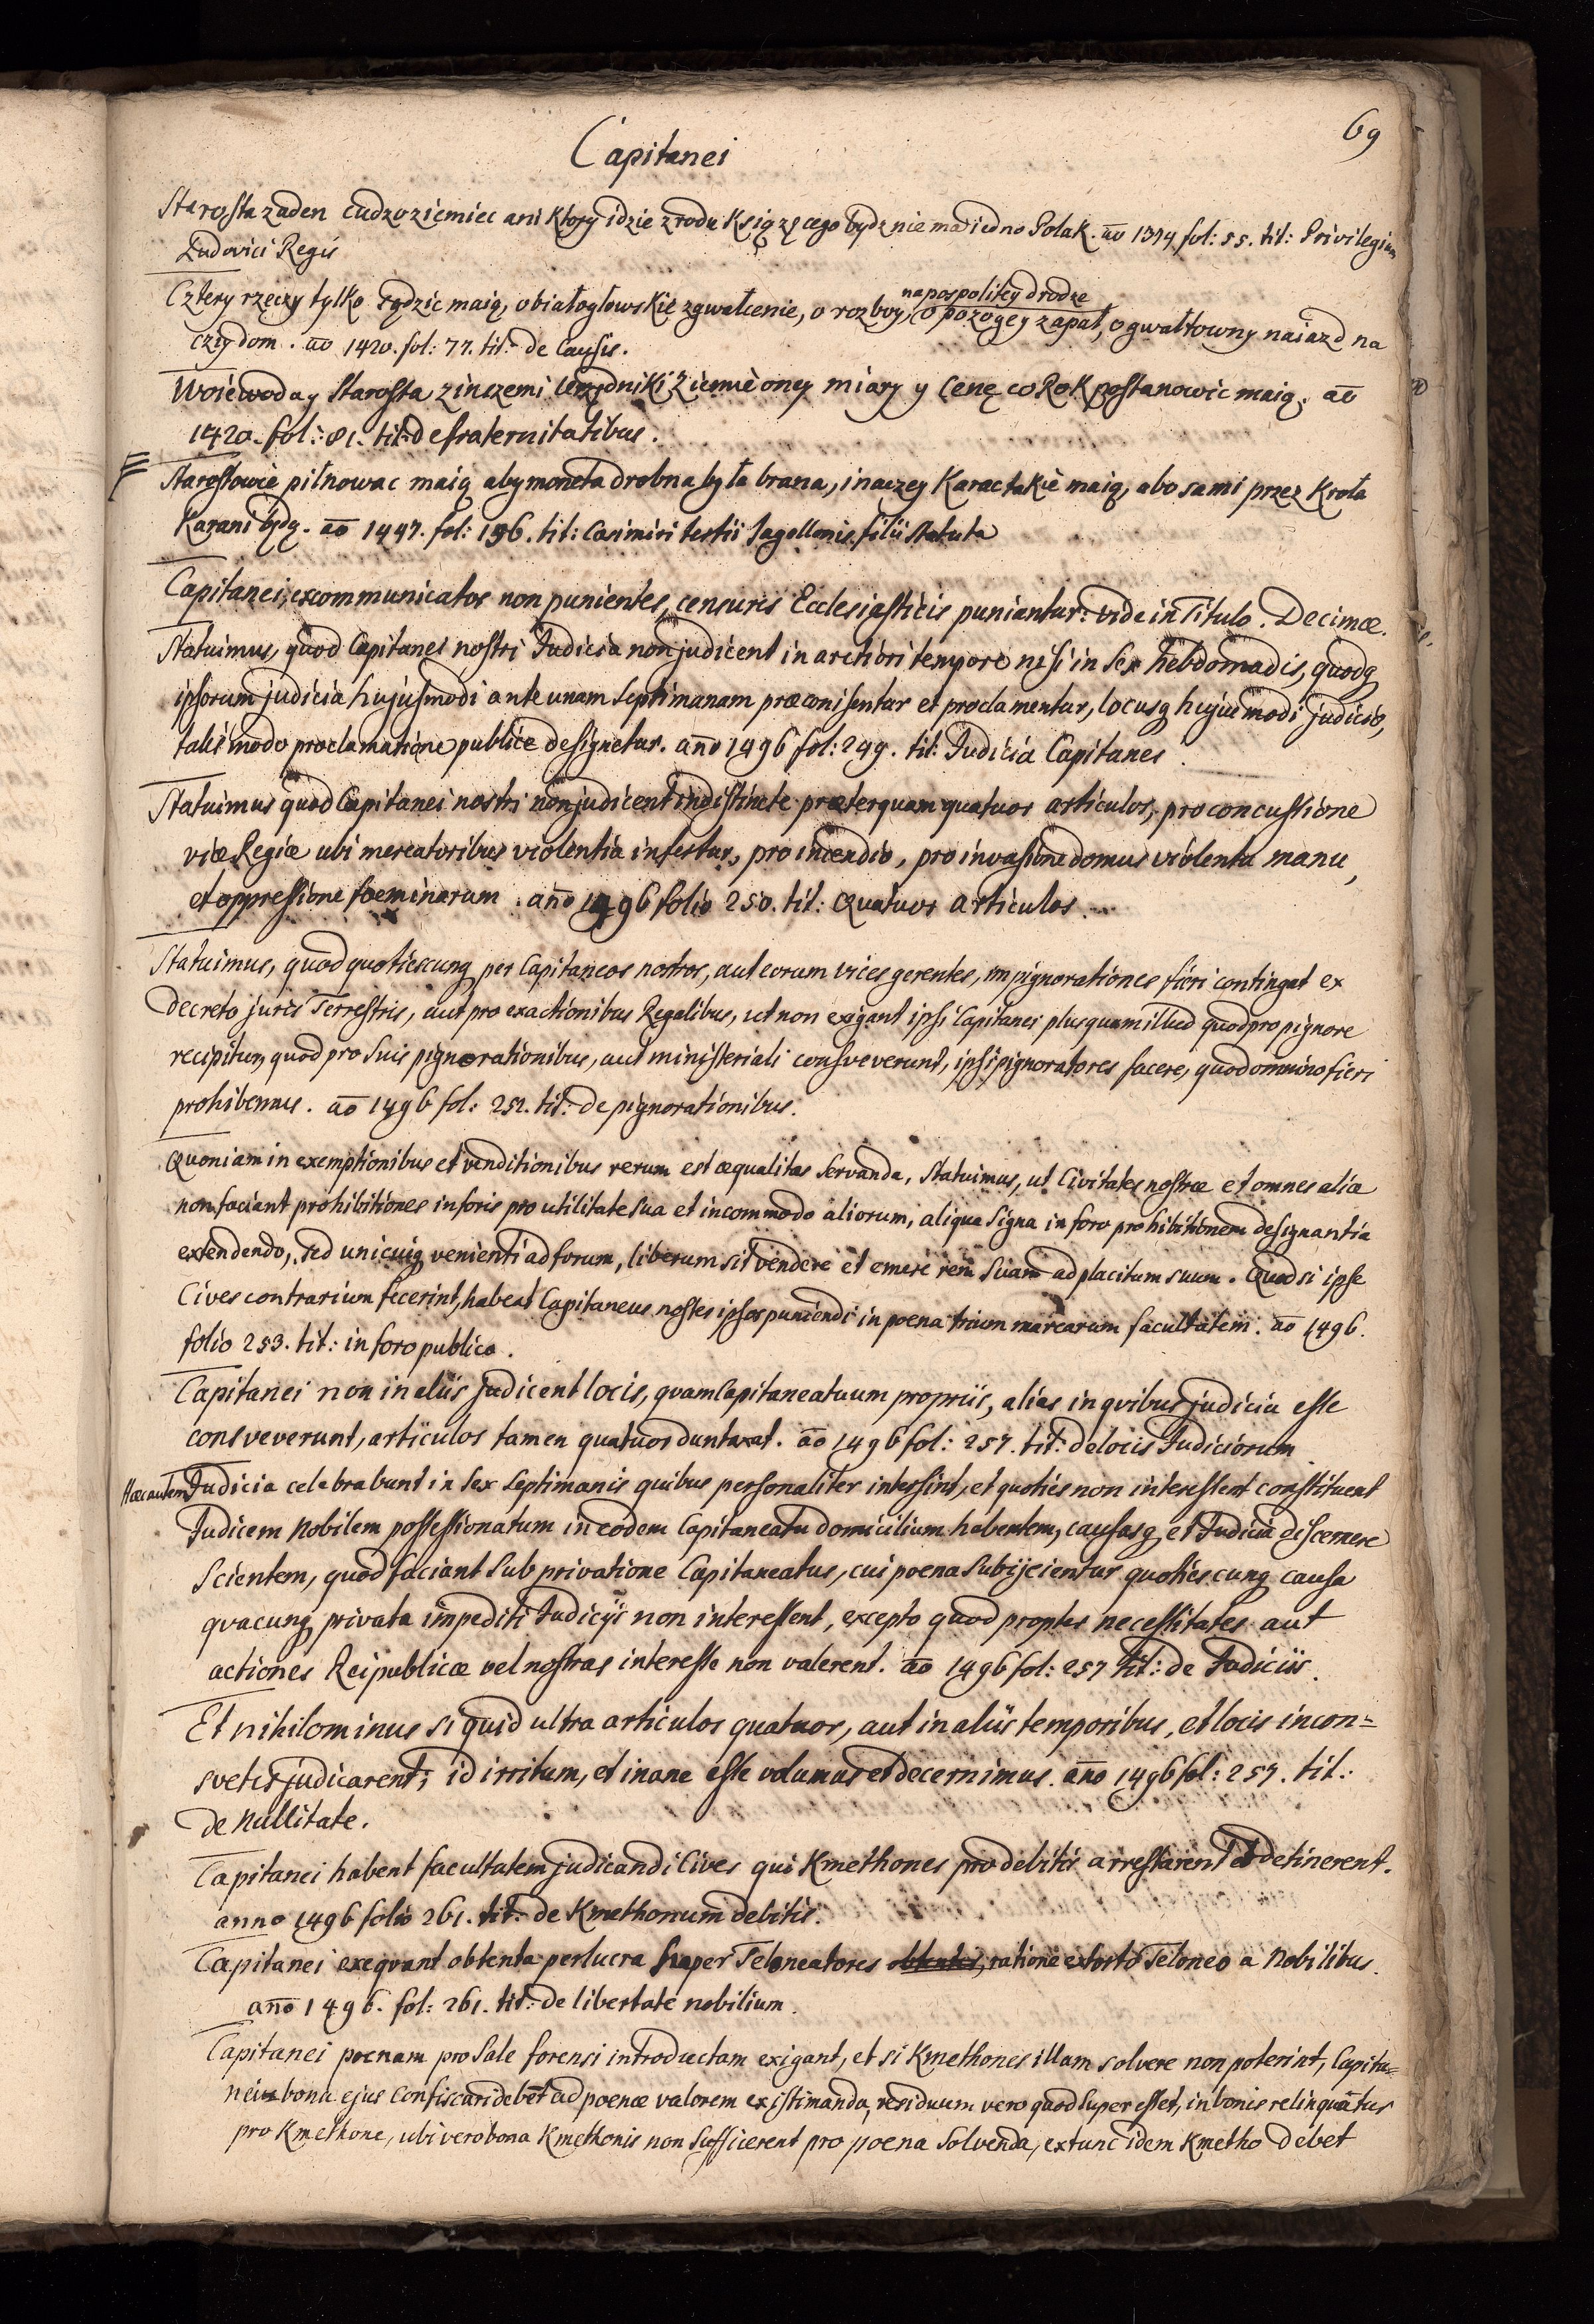 69
Capitanei
Starosta zaden cudzoziemiec ani ktory idzie z rodu Książęcego bydz nie ma iedno Polak. ao 1374 fol: 55. tit: Privilegium
Ludovici Regis
Cztery rzeczy tylko sądzic maią, o białogłowskie zgwałcenie, o rozboy, na pospolitey drodze o pozogey zapał, o gwałtowny naiazd na
czÿ dom. ao 1420. fol: 77. tit: de Causis.
Woiewoda y Starosta z inszemi Urzędniki Ziemie oney miary y Cenę co Rok postanowic maią. ao
1420. fol: 81. tit: de fraternitatibus.
Starostowie pilnowac maią aby moneta drobna była brana, inaczey Karac takie maią, abo sami przez Krola
Karani będą. ao 1447. fol: 196. tit: Casimiri tertii Jagellonis filii statuta
Capitanei, excommunicatos non punientes, censuris Ecclesiasticis puniantur: vide in Titulo. Decimæ.
Statuimus, quod Capitanei nostri Judicia non judicent in arctiori tempore nisi in Sex hebdomadis, quodq
ipsorum judicia hujusmodi ante unam Septimanam præconisentur et proclamentur, locusq hujusmodi judicio,
tali modo proclamatione publice designetur. año 1496 fol: 249. tit: Judicia Capitanei
Statuimus quod Capitanei nostri non judicent indistincte præterquam quatuor articulos, pro concussione
viæ Regiæ ubi mercatoribus violentia infertur, pro incendio, pro invasione domus violenta manu,
et oppressione foeminarum. año 1496 folio 250. tit: Quatuor articulos.
Statuimus, quod quotiescunq per Capitaneos nostros, aut eorum vices gerentes, impignorationes fieri contingat ex
decreto juris Terrestris, aut pro exactionibus Regalibus, ut non exigant ipsi Capitanei plus quam illud quod pro pignore
recipitur, quod pro suis pignorationibus, aut ministeriali consveverunt, ipsi pignoratores facere, quod omnino fieri
prohibemus. ao 1496 fol: 252. tit: de pignorationibus.
Quoniam in exemptionibus et venditionibus rerum est æqualitas Servanda, Statuimus, ut Civitates nostræ et omnes aliæ
non faciant prohibitiones in foris pro utilitate sua et incommodo aliorum, aliqua Signa in foro prohibitionem designantia
extendendo, sed unicuiq venienti ad forum, liberum sit vendere et emere rem Suam ad placitum suum. Quod si ipse
Cives contrarium fecerint, habeat Capitaneus noster ipsos puniendi in poena trium marcarum facultatem. ao 1496.
folio 253. tit: in foro publico.
Capitanei non in aliis judicent locis, qvam Capitaneatuum propriis, alias in qvibus judicia esse
consveverunt, articulos tamen quatuor duntaxat. ao 1496 fol: 257. tit: de locis Judiciorum
Hæc autem Judicia celebrabunt in Sex Septimanis quibus personaliter intersint, et quoties non interessent constituent
Judicem Nobilem possessionatum in eodem Capitaneatu domicilium habentem, causasq et Judicia discernere
Scientem, quod faciant Sub privatione Capitaneatus, cui poena Subijcientur quotiescunq causa
qvacunq privata impediti Judiciis non interessent, excepto quod propter necessitates aut
actiones Reipublicæ vel nostras interesse non valerent. ao 1496 fol: 257 tit: de Judiciis.
Et nihilominus si quid ultra articulos quatuor, aut in aliis temporibus, et locis incon=
svetis judicarent; id irritum, et inane esse volumus et decernimus. año 1496 fol: 257. tit:
de Nullitate.
Capitanei habent facultatem judicandi Cives qui Kmethones pro debitis arrestarent et detinerent.
anno 1496 folio 261. tit: de Kmethonum debitis.
Capitanei exeqvant obtenta per lucra Super Teloneatores obtenta, ratione extorto Teloneo a Nobilibus.
año 1496. fol: 261. tit: de libertate nobilium.
Capitanei poenam pro Sale forensi introductam exigant, et si Kmethones illam solvere non poterint, Capita=
neus bona ejus Confiscari debet ad poenæ valorem existimanda, residuum vero quod Super esset, in bonis relinquatur
pro Kmethone, ubi vero bona Kmethonis non Sufficerent pro poena Solvenda, extunc idem Kmetho debet